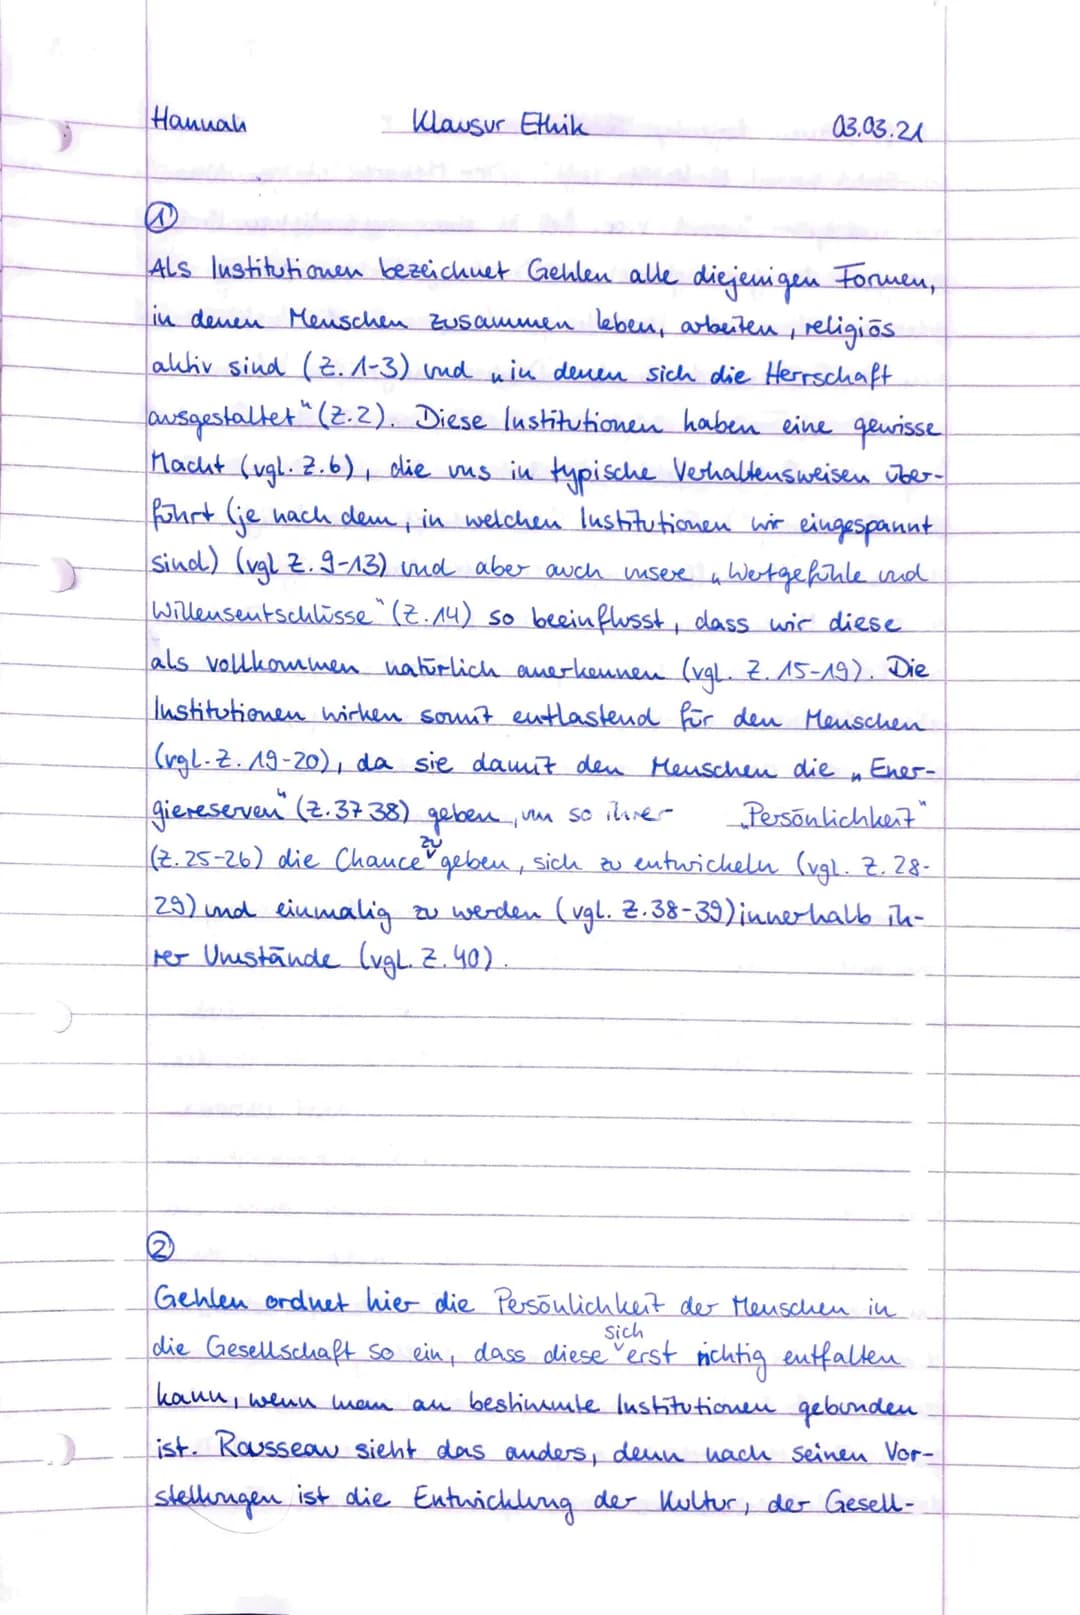 Hannah Klausur Ethik 03.03.21
①
Als Institutionen bezeichnet Gehlen alle diejenigen Formen,
in denen Menschen zusammen leben, arbeiten, religiös
aktiv sind (Z. 1-3) und „in denen sich die Herrschaft
ausgestaltet" (Z.2). Diese Institutionen haben eine gewisse
Macht (vgl. Z.6), die uns in typische Verhaltensweisen über-
führt (je nach dem, in welchen Institutionen wir eingespannt
sind) (vgl Z. 9-13) und aber auch unsere „Wertgefühle und
Willensentschlüsse" (Z.14) so beeinflusst, dass wir diese
als vollkommen natürlich anerkennen (vgl. Z. 15-19). Die
Institutionen wirken somit entlastend für den Menschen
(vgl. Z. 19-20), da sie damit den Menschen die „Ener-
giereserven" (Z.37 38) geben, um so ihrer „Persönlichkeit"
(Z. 25-26) die Chance zu geben, sich zu entwickeln (vgl. Z. 28-
29) und einmalig zu werden (vgl. Z.38-39) innerhalb ih-
rer Umstände (vgl. Z. 40).
②
Gehlen ordnet hier die Persönlichkeit der Menschen in
die Gesellschaft so ein, dass diese sich erst richtig entfalten
kann, wenn man an bestimmte Institutionen gebunden
ist. Rousseau sieht das anders, denn nach seinen Vor-
stellungen ist die Entwicklung der Kultur, der Gesell-